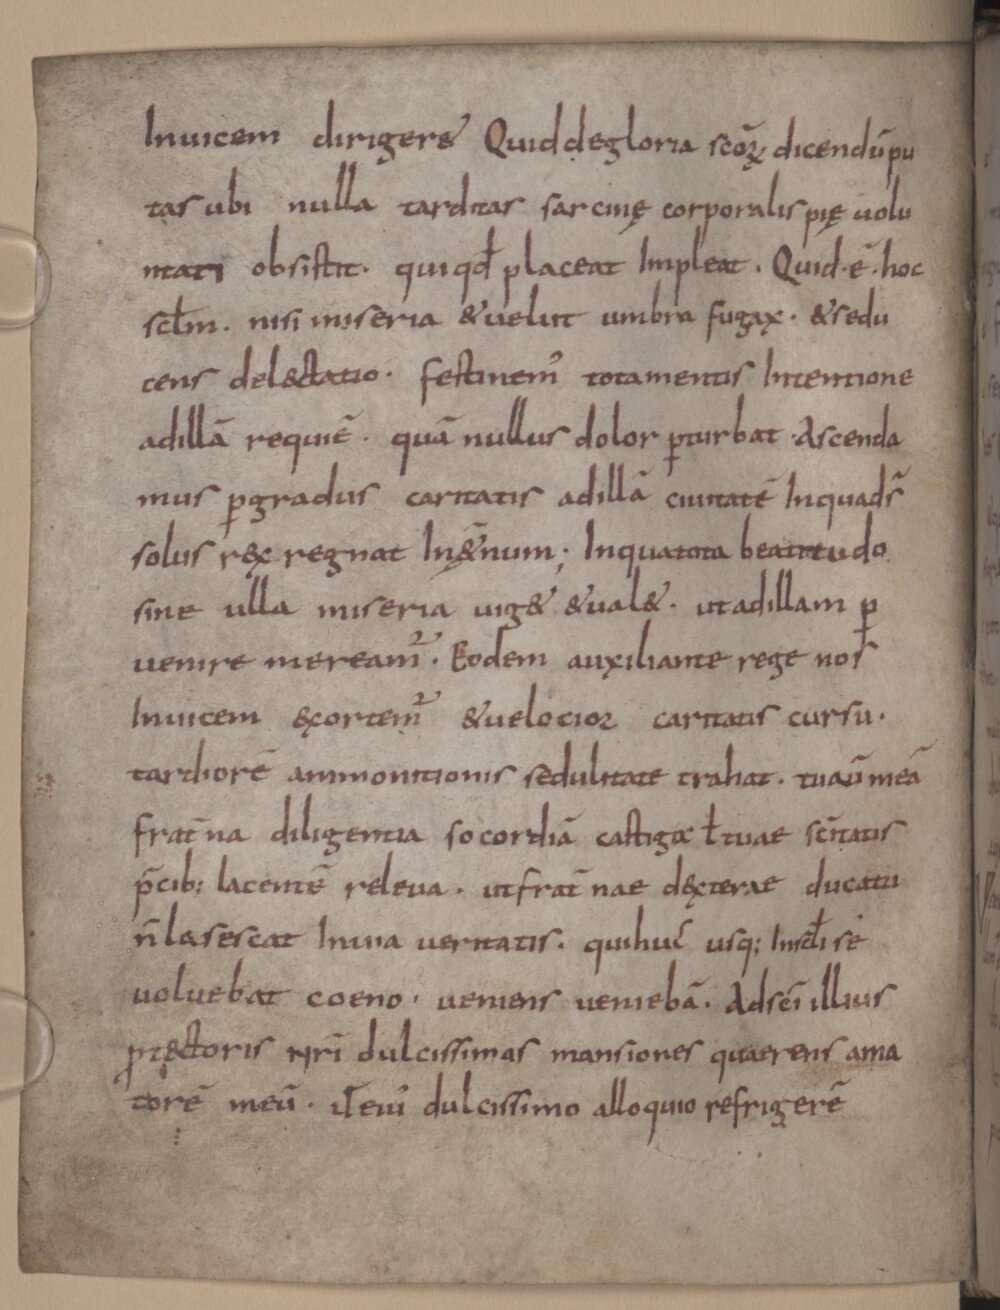 Inuicem dirigere& Quid degloria scōꝝ dicendū pu
tas ubi nulla tarditas sarcinę corporalis pię uolu
ntati obsistit· qui qđ placeat Impleat. Quid·ē·hoc
scłm. nisi miseria &uelut umbra fugax· &sedu
cens del&ctatio· festinem᾽ totamentis Intentione
adillā requiē· quā nullus dolor ꝑturbat·Ascenda
mus ꝑgradus caritatis adillā ciuitatē Inqua dn̄s
solus rex regnat In&ernum; Inquatota beatitudo
sine ulla miseria uig& &ual&· utadillam ꝑ
uenire mereamur· Eodem auxiliante rege nos
Inuicem excortemur &uelocioꝛ caritatis cursu·
tardiorē ammonitionis sedulitate trahat· tuaū meā
frat̄na diligentia socordiā castiga& ł tuae sc̄itatis
p̄cib; Iacentē releua· utfrat̄nae dexterae ducatu
n̄ lasescat Inuia ueritatis· quihuc̄ usq; Insđi se
uoluebat coeno· ueniens ueniebā· Adsc̄i illius
prot&ctoris nr̄i dulcissimas mansiones quaerens ama
torē meū· dulcissimo alloquio refrigerē